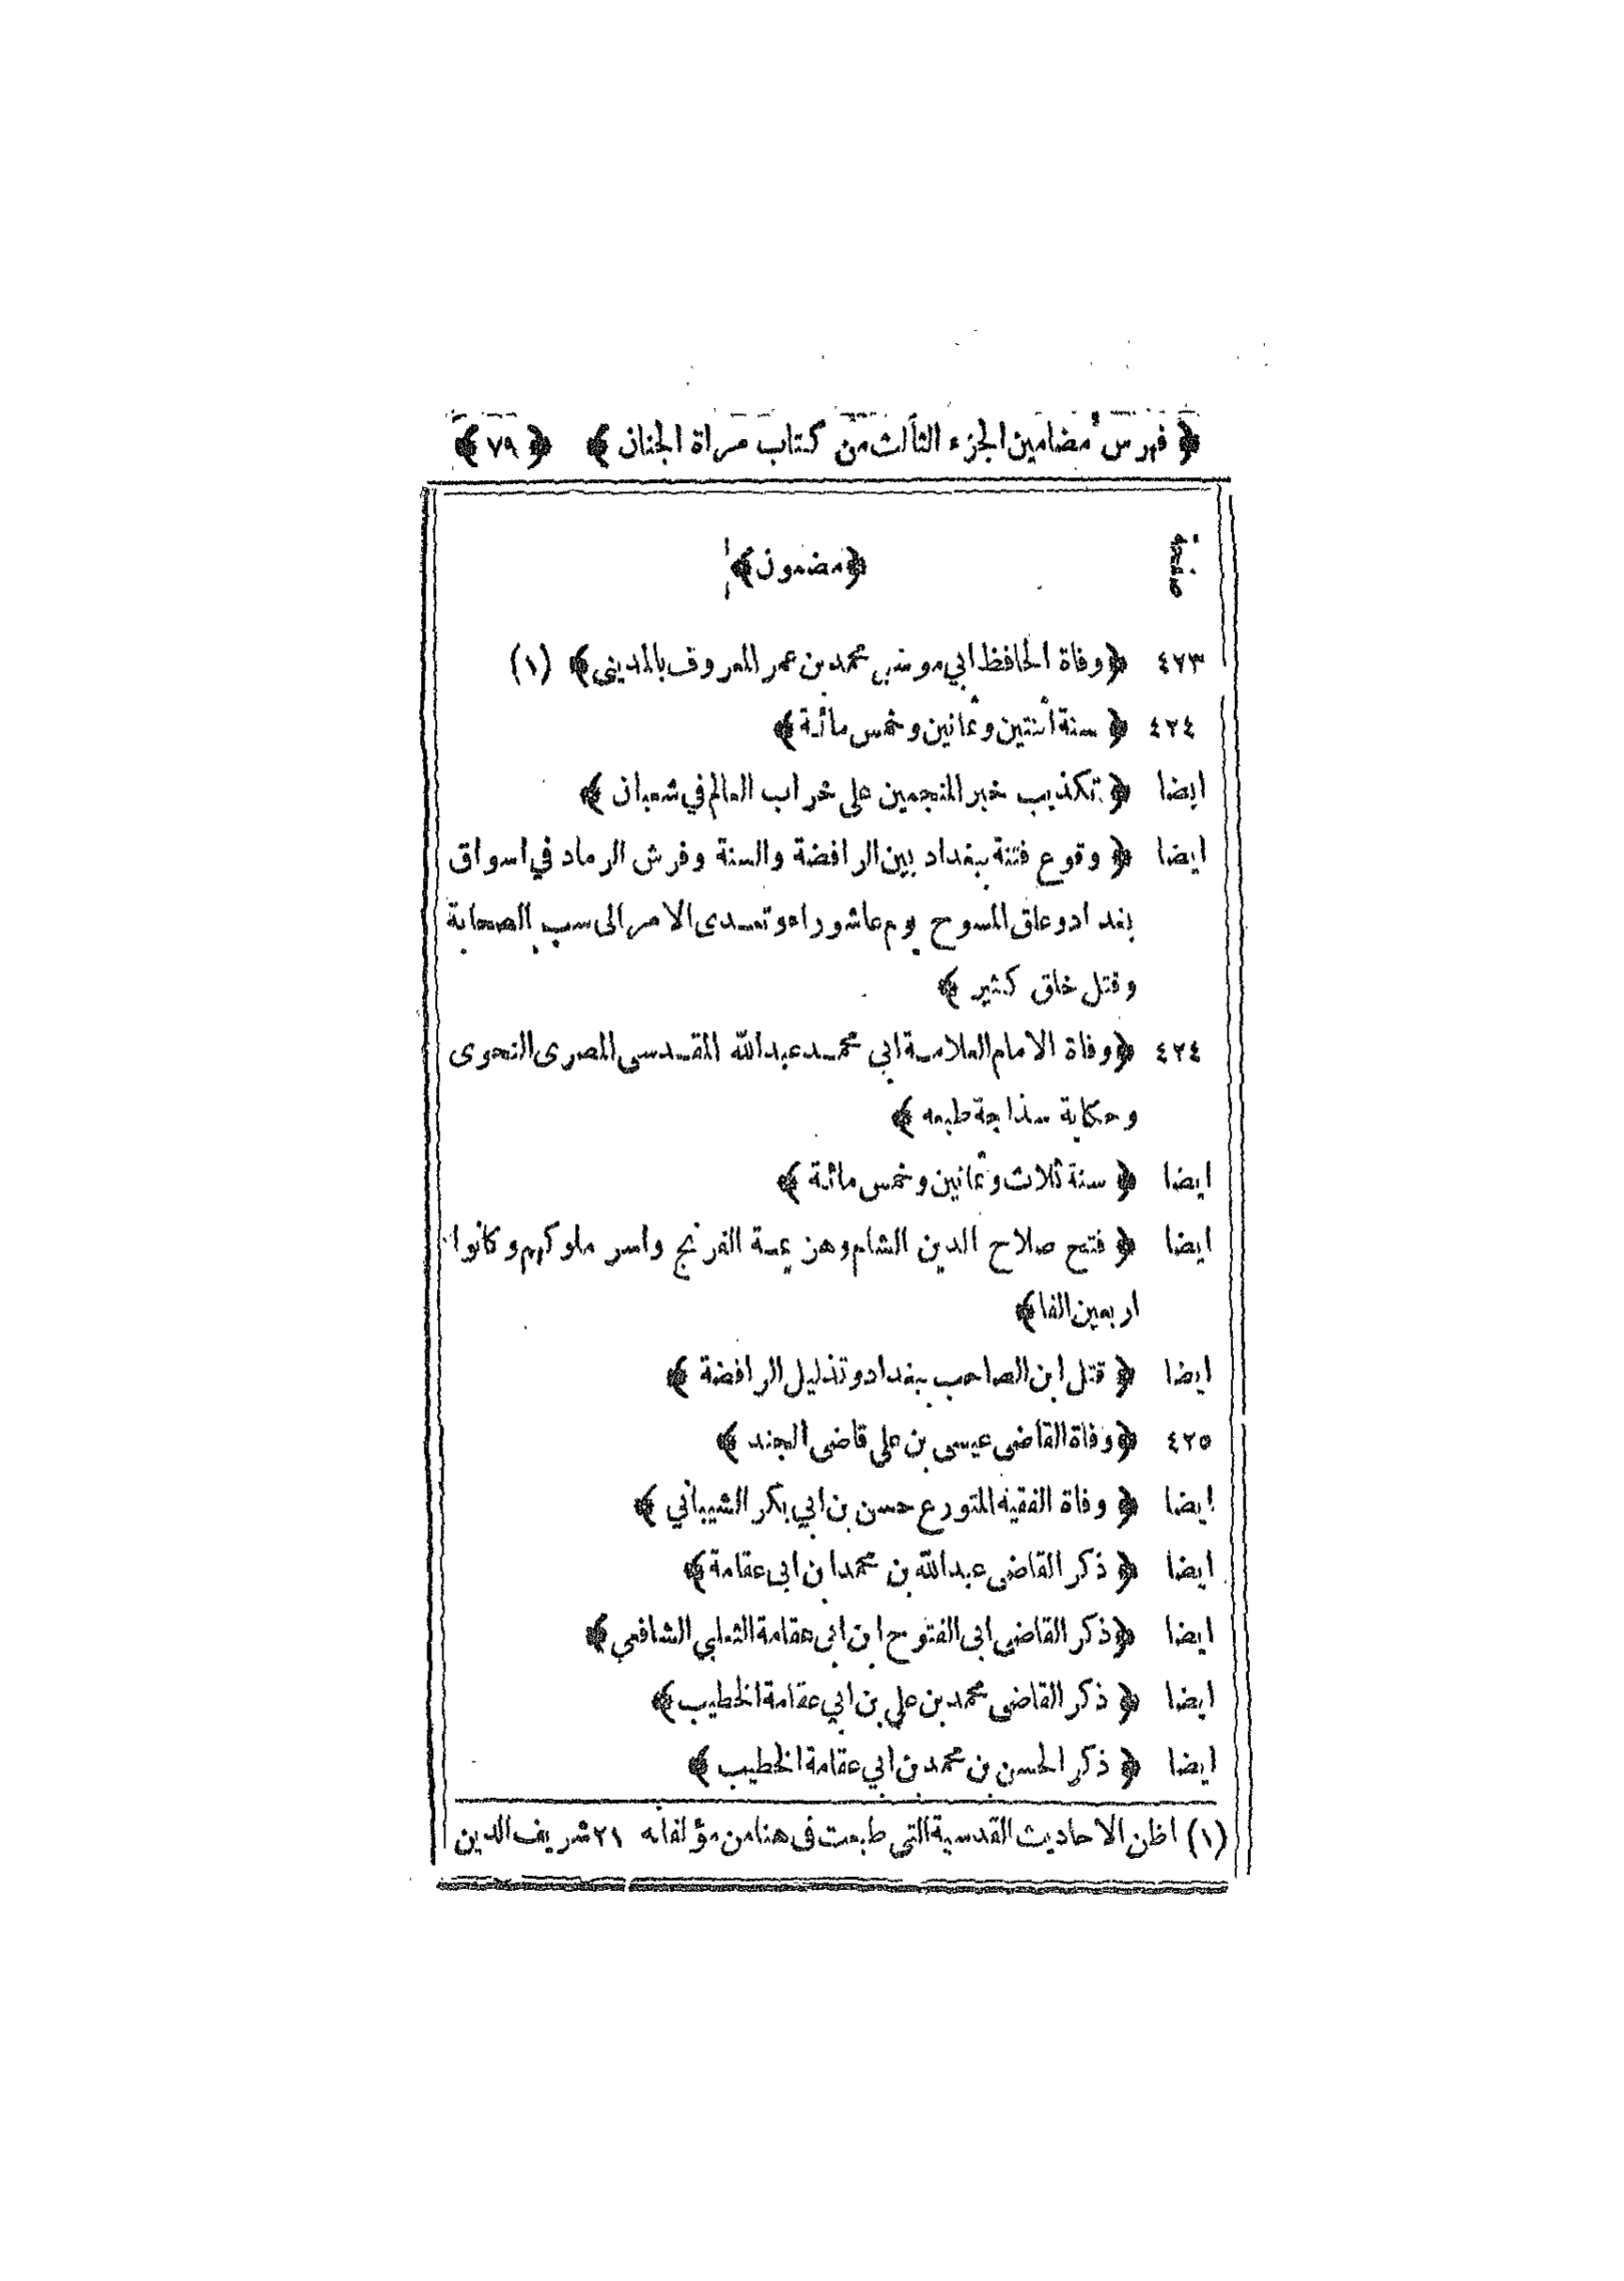 ﴿ فهرس مضامين الجزء الثالث من كتاب مرآة الجنان ﴾ ﴿ ٧٩ ﴾
صفحة ﴿ مضمون ﴾
٤٢٣ ﴿ وفاة الحافظ ابي موسى محمد بن عمر المعروف بالمديني ﴾ (١)
٤٢٤ ﴿ سنة اثنتين وثمانين وخمس مائة ﴾
ايضا ﴿ تكذيب خبر المنجمين على خراب العالم في شعبان ﴾
ايضا ﴿ وقوع فتنة ببغداد بين الرافضة والسنة وفرش الرماد في اسواق
بغداد وعلق المسوح يوم عاشوراء وتعدى الامر الى سب الصحابة
وقتل خلق كثير ﴾
٤٢٤ ﴿ وفاة الامام العلامة ابي محمد عبد الله المقدسى المصرى النحوى
وحكاية سذاجة طبعه ﴾
ايضا ﴿ سنة ثلاث وثمانين وخمس مائة ﴾
ايضا ﴿ فتح صلاح الدين الشام وهزيمة الفرنج واسر ملوكهم وكانوا
اربعين الفا ﴾
ايضا ﴿ قتل ابن الصاحب ببغداد وتذليل الرافضة ﴾
٤٢٥ ﴿ وفاة القاضى عيسى بن على قاضى الجند ﴾
ايضا ﴿ وفاة الفقيه المتورع حسن بن ابي بكر الشيباني ﴾
ايضا ﴿ ذكر القاضى عبد الله بن محمد ابن ابى عقامة ﴾
ايضا ﴿ ذكر القاضى ابى الفتوح ابن ابى عقامة الثعلبي الشافعي ﴾
ايضا ﴿ ذكر القاضى محمد بن علي بن ابي عقامة الخطيب ﴾
ايضا ﴿ ذكر الحسن بن محمد بن ابي عقامة الخطيب ﴾
(١) اظن الاحاديث القدسية التى طبعت فى هنا من مؤلفاته ٢١ شريف الدين